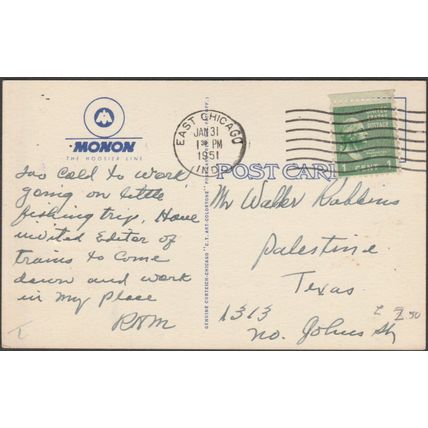 MONON
THE HOOSIER LINE
EAST CHICAGO
JAN 31
1 30 PM
1951
IND.
UNITED STATES
POSTAGE
1 CENT 1
POST CARD
GENUINE CURTEICH-CHICAGO "C.T. ART-COLORTONE" POST CARD
Too cold to work
going on little
fishing trip, Have
invited Editor of
trains to come
down and work
in my place
RHM
Mr Walter Robbins
Palestine
Texas
1313
No. Johns St
2.50